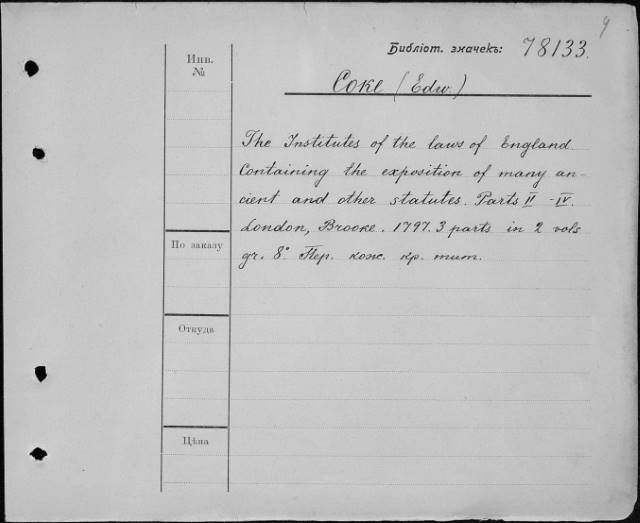 9
Библіот. значекъ: 78133.
Инв.
№
Coke (Edw.)
The Institutes of the laws of England
Containing the exposition of many an-
cient and other statutes. Parts II - IV.
London, Brooke. 1797. 3 parts in 2 vols
gr. 8° Пер. кож. кр. тит.
По заказу
Откуда
Цѣна